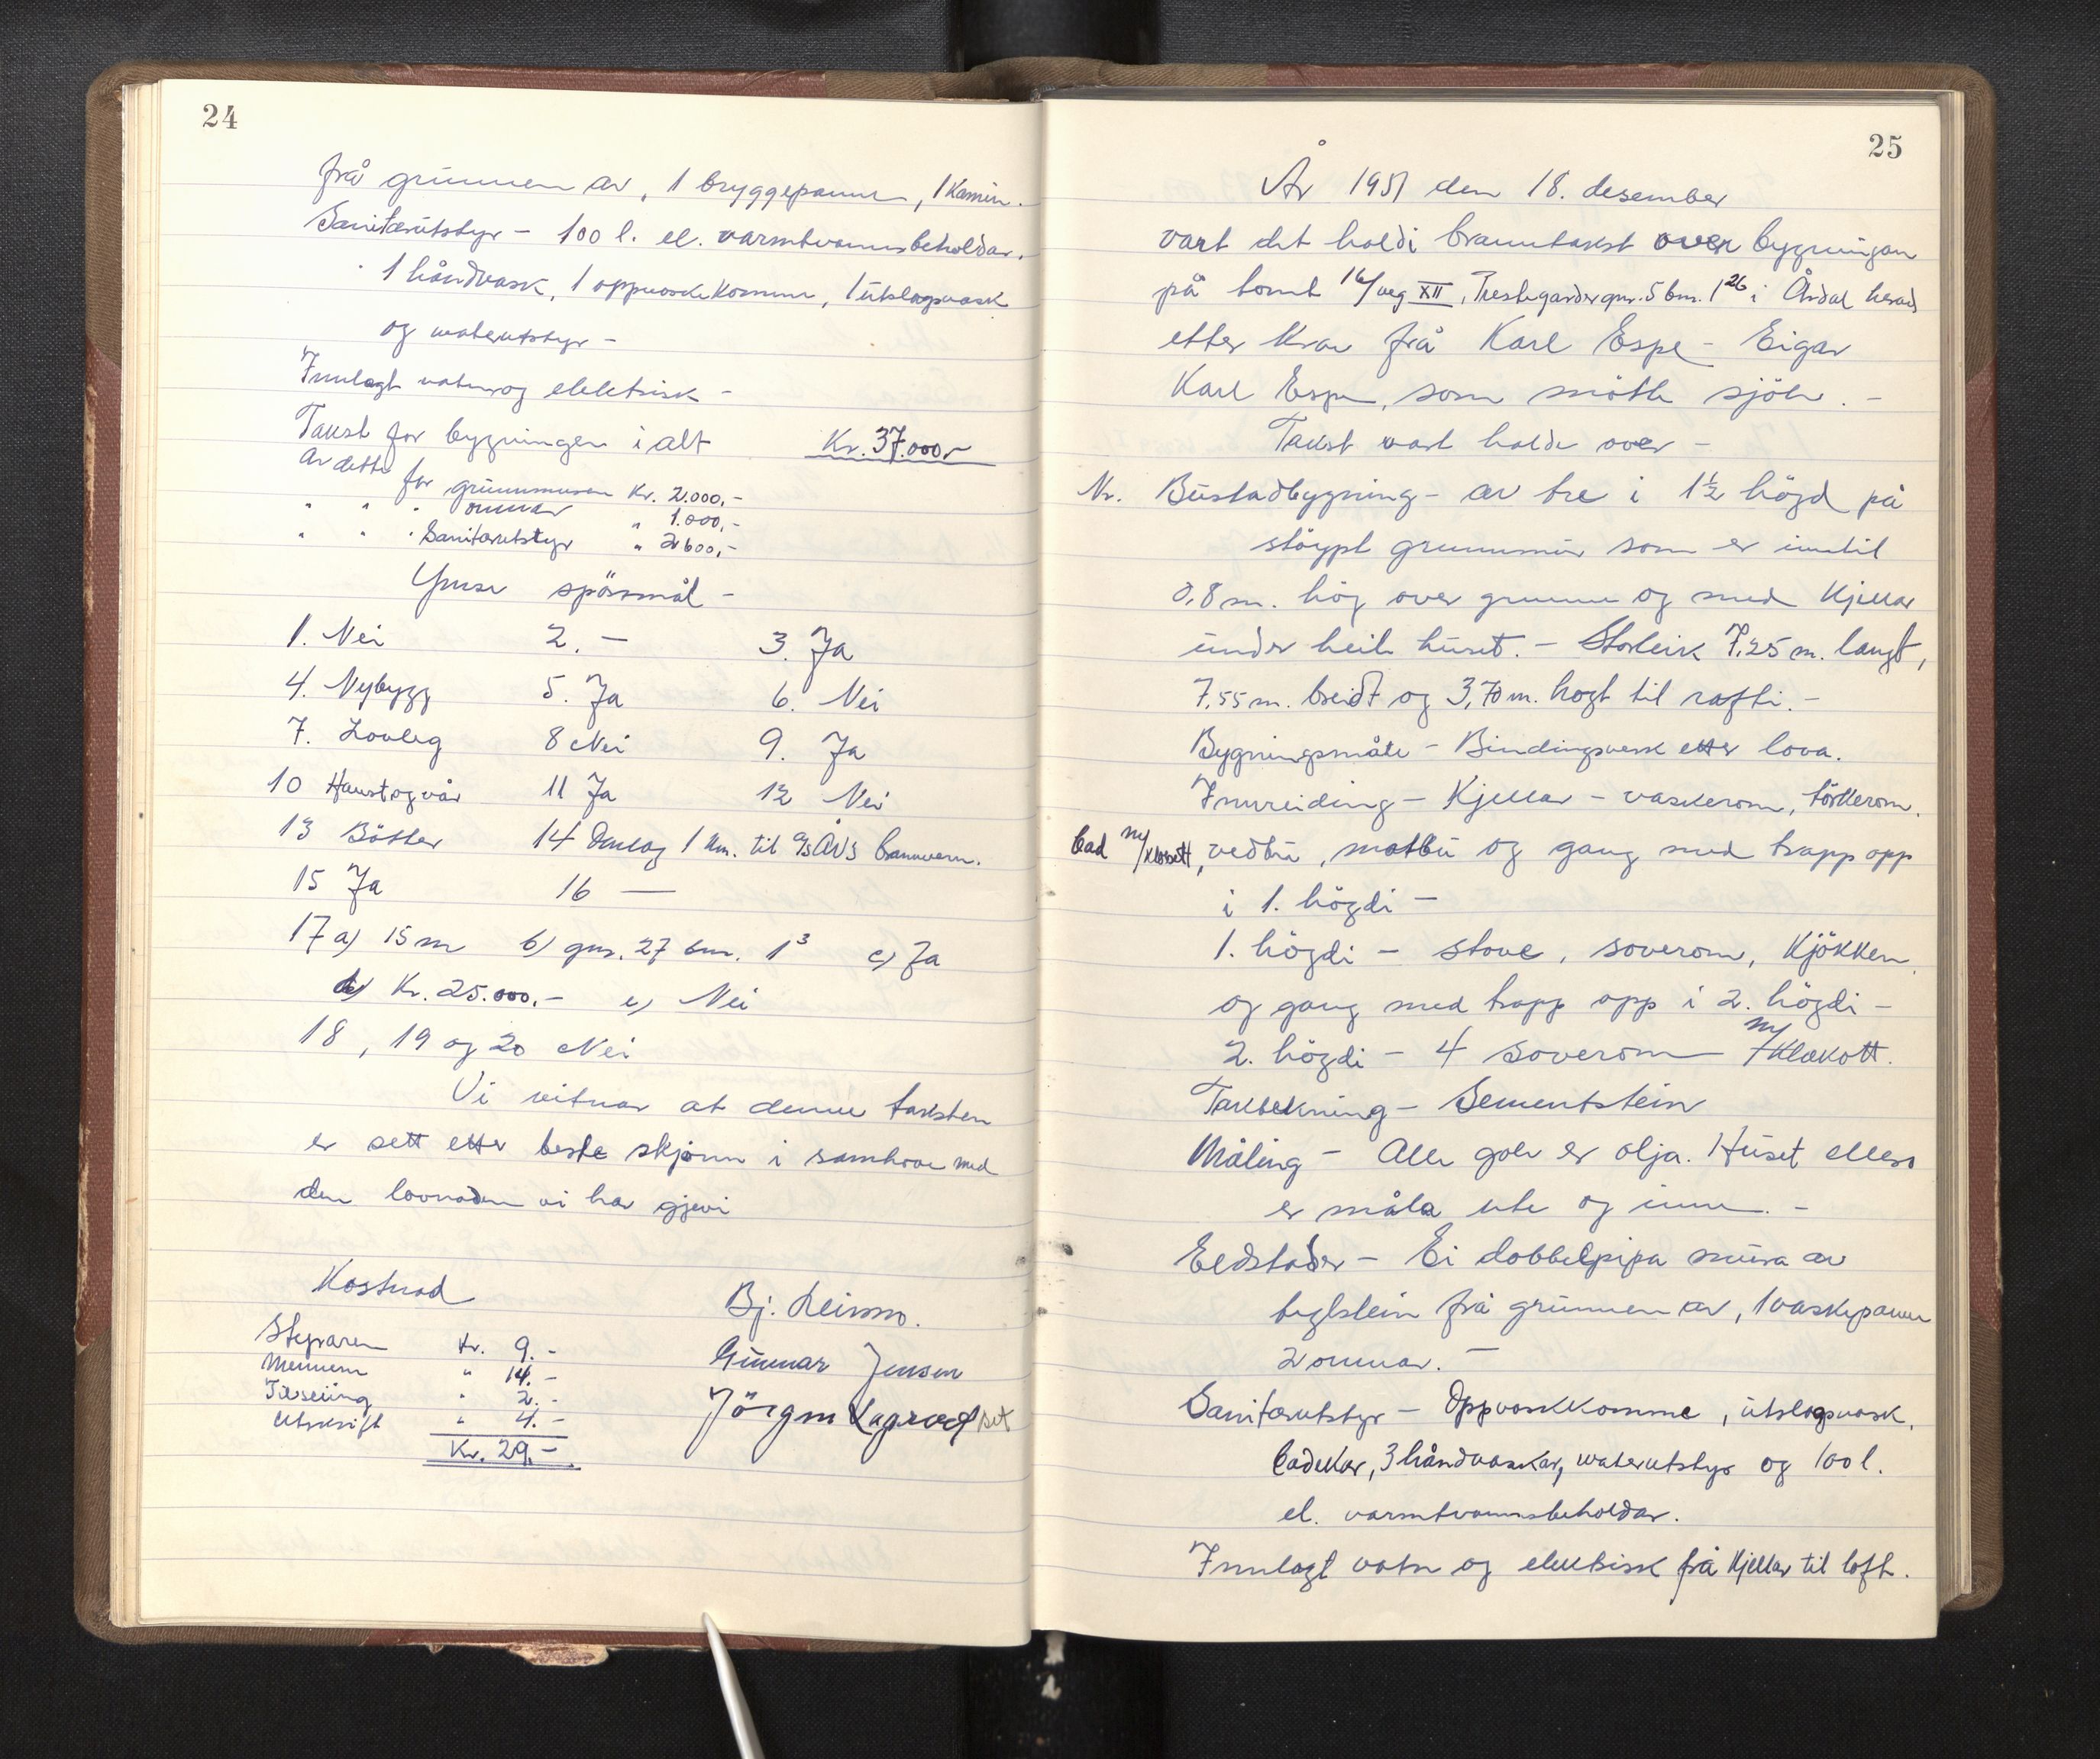 24
frå grunnen av, 1 bryggepanne, 1 Kamin.
Sanitærutstyr – 100 l. el. varmtvannsbeholdar.
1 håndvask, 1 oppvaskkomme, 1 utslagsvask
og waterutstyr –
Innlagt vatn og elektrisk –
Takst for bygningen i alt Kr. 37.000,-
Av dette for grunnmuren Kr. 2.000,-
" " " omnar " 1.000,-
" " " Sanitærutstyr " 2600,-
Ymse spörsmål –
1. Nei 2. – 3. Ja
4. Nybygg 5. Ja 6. Nei
7. Lovleg 8 Nei 9. Ja
10 Haust og vår 11 Ja 12 Nei
13 Bötter 14 Omlag 1 km. til A/S ÅVs brannvern.
15 Ja 16 —
17 a) 15 m b) gnr. 27 bnr. 1³ c) Ja
d) Kr. 25.000.- e) Nei
18, 19 og 20 Nei
Vi vitnar at denne taksten
er sett etter beste skjønn i samhøve med
den lovnaden vi har gjevi
Kostnad
Bj. Leirmo.
Styraren Kr. 9.-
Gunnar Jensen
Mennene " 14.-
Tilseiing " 2.-
Jörgen
Utskrift " 4.-
Kr. 29.-
25
År 1951 den 18. desember
vart det haldi branntakst over bygningan
på tomt 16/veg XII, Trestegarder gnr. 5 bnr. 1²⁶ i Årdal herad
etter krav frå Karl Espe – Eigar
Karl Espe, som møtte sjölv. –
Takst vart halde over –
Nr. Bustadbygning – av tre i 1½ högd på
stöypt grunnmur som er inntil
0,8 m. hög over grunnen og med Kjellar
under heile huset. – Storleik 7,25 m. langt,
7,55 m. breidt og 3,70 m. högt til rafti. –
Bygningsmåte – Bindingsverk etter lova.
Innreiding – Kjellar – vaskerom, törkerom,
bad m/klosett, vedbu, matbu og gang med trapp opp
i 1. högdi –
1. högdi – stove, soverom, Kjökken
og gang med trapp opp i 2. högdi –
2. högdi – 4 soverom m/7 Klekott.
Taktekning – Sementstein
Måling – Alle golv er olja. Huset ellers
er måla ute og inne. –
Eldstader – Ei dobbelpipa mura av
teglstein frå grunnen av, 1 vaskepanne
2 omnar. –
Sanitærutstyr – Oppvaskkomme, utslagsvask,
badekar, 3 håndvaskar, waterutstyr og 100 l.
el. varmtvannsbeholdar.
Innlagt vatn og elektrisk frå Kjellar til loft.